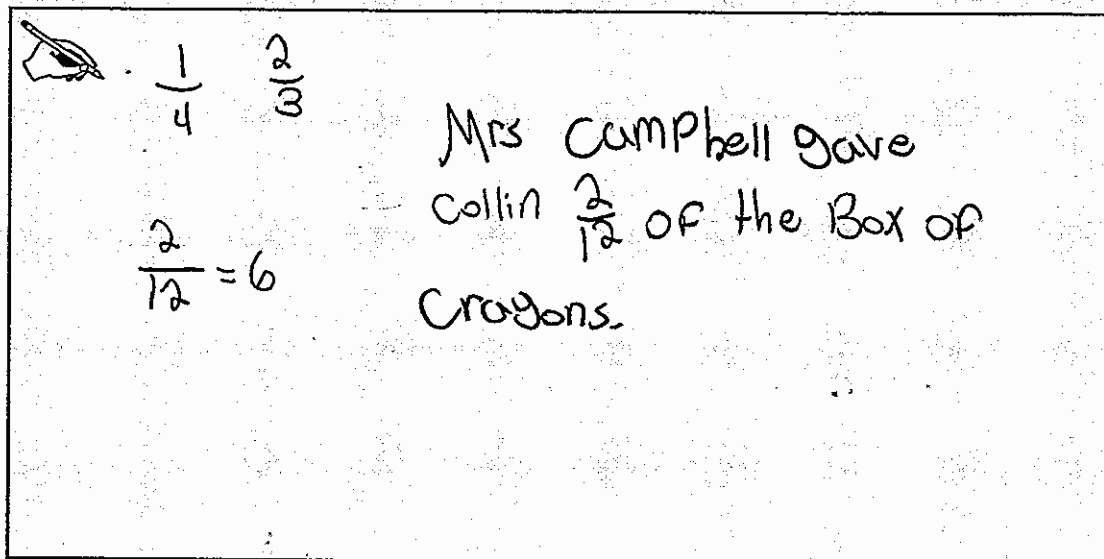 1/4 2/3
Mrs Campbell gave
collin 2/12 of the Box of
Crayons.
2/12 = 6